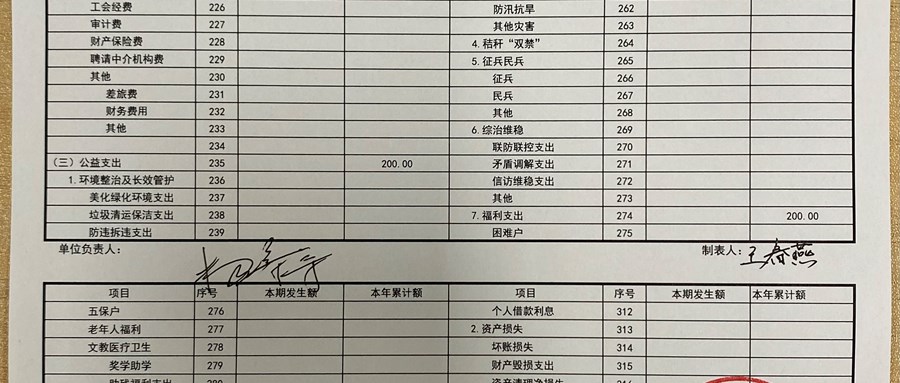 工会经费 226 防汛抗旱 262
审计费 227 其他灾害 263
财产保险费 228 4.秸秆“双禁” 264
聘请中介机构费 229 5.征兵民兵 265
其他 230 征兵 266
差旅费 231 民兵 267
财务费用 232 其他 268
其他 233 6.综治维稳 269
234 联防联控支出 270
(三)公益支出 235 200.00 矛盾调解支出 271
1.环境整治及长效管护 236 信访维稳支出 272
美化绿化环境支出 237 其他 273
垃圾清运保洁支出 238 7.福利支出 274 200.00
防违拆违支出 239 困难户 275
单位负责人: 制表人: 王春燕
项目 序号 本期发生额 本年累计额 项目 序号 本期发生额 本年累计额
五保户 276 个人借款利息 312
老年人福利 277 2.资产损失 313
文教医疗卫生 278 坏账损失 314
奖学助学 279 财产毁损支出 315